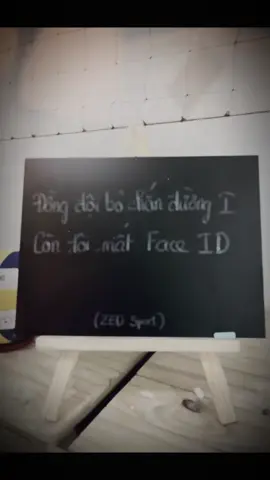 Đồng đội bỏ bắn đường I
Còn tôi mất Face ID
(ZED Sport)